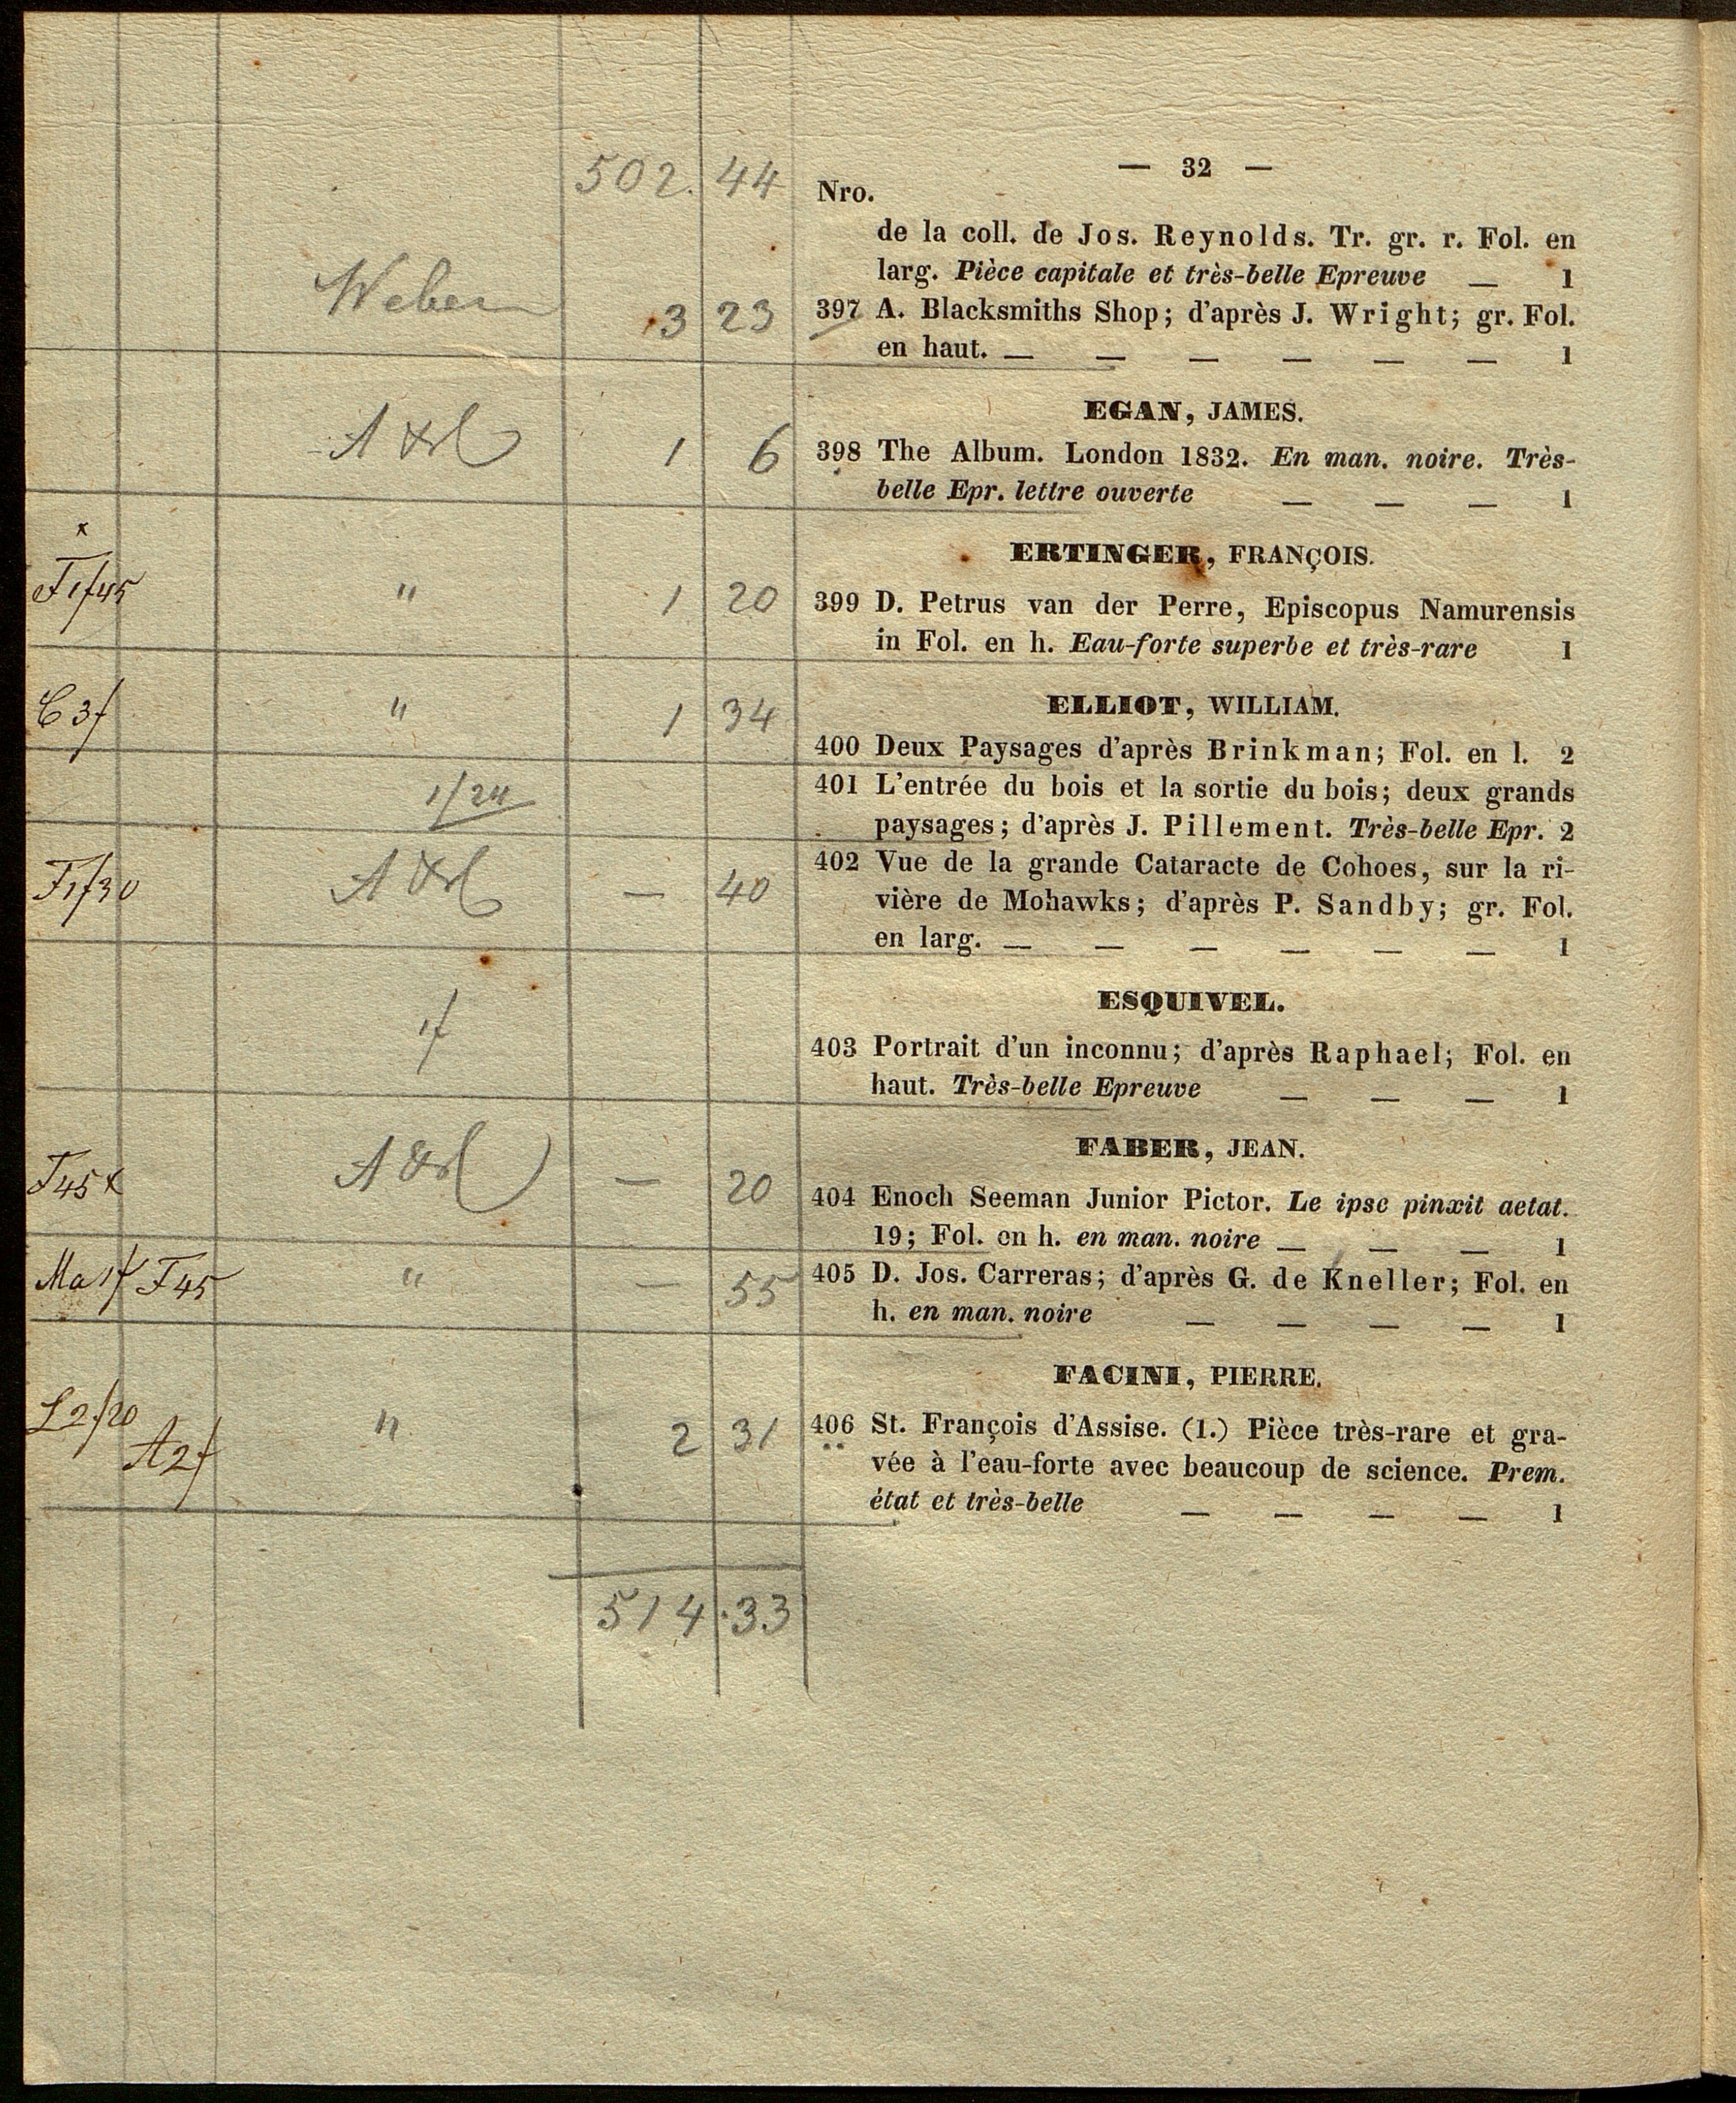 502. 44
— 32 —
Nro.
de la coll. de Jos. Reynolds. Tr. gr. r. Fol. en
larg. Pièce capitale et très-belle Epreuve — 1
Weber 3 23 397 A. Blacksmiths Shop; d'après J. Wright; gr. Fol.
en haut. — — — — — — 1
EGAN, JAMES.
1 6 398 The Album. London 1832. En man. noire. Très-
belle Epr. lettre ouverte — — — 1
ERTINGER, FRANÇOIS.
x
F 1f45 " 1 20 399 D. Petrus van der Perre, Episcopus Namurensis
in Fol. en h. Eau-forte superbe et très-rare 1
ELLIOT, WILLIAM.
C 3f " 1 34 400 Deux Paysages d'après Brinkman; Fol. en l. 2
1f24 401 L'entrée du bois et la sortie du bois; deux grands
paysages; d'après J. Pillement. Très-belle Epr. 2
F1f30 — 40 402 Vue de la grande Cataracte de Cohoes, sur la ri-
vière de Mohawks; d'après P. Sandby; gr. Fol.
en larg. — — — — — — 1
ESQUIVEL.
1f 403 Portrait d'un inconnu; d'après Raphael; Fol. en
haut. Très-belle Epreuve — — — 1
FABER, JEAN.
F45x — 20 404 Enoch Seeman Junior Pictor. Le ipse pinxit aetat.
19; Fol. en h. en man. noire — — — 1
Ma 1f F45 " — 55 405 D. Jos. Carreras; d'après G. de Kneller; Fol. en
h. en man. noire — — — — 1
FACINI, PIERRE.
L2f20 A2f " 2 31 406 St. François d'Assise. (1.) Pièce très-rare et gra-
vée à l'eau-forte avec beaucoup de science. Prem.
état et très-belle — — — — 1
514.33